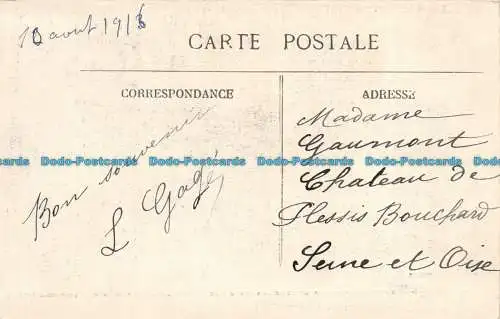 août 191
CARTE POSTALE
CORRESPONDANCE
ADRESSE
Bon souvenir
L Gagé
Madame
Gaumont
Chateau de
Plessis Bouchard
Seine et Oise
Dodo-Postcards Dodo-Postcards Dodo-Postcards Dodo-Postcards